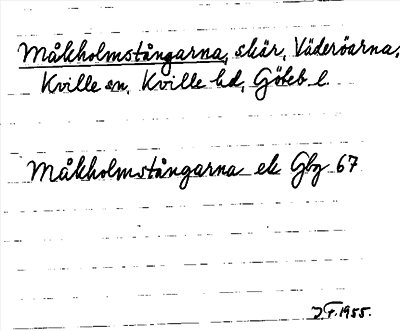 Måkholmstångarna, skär, Väderöarna,
Kville sn, Kville hd, Göteb l.
Måkholmstångarna ek Gbg 67
J.F. 1955.